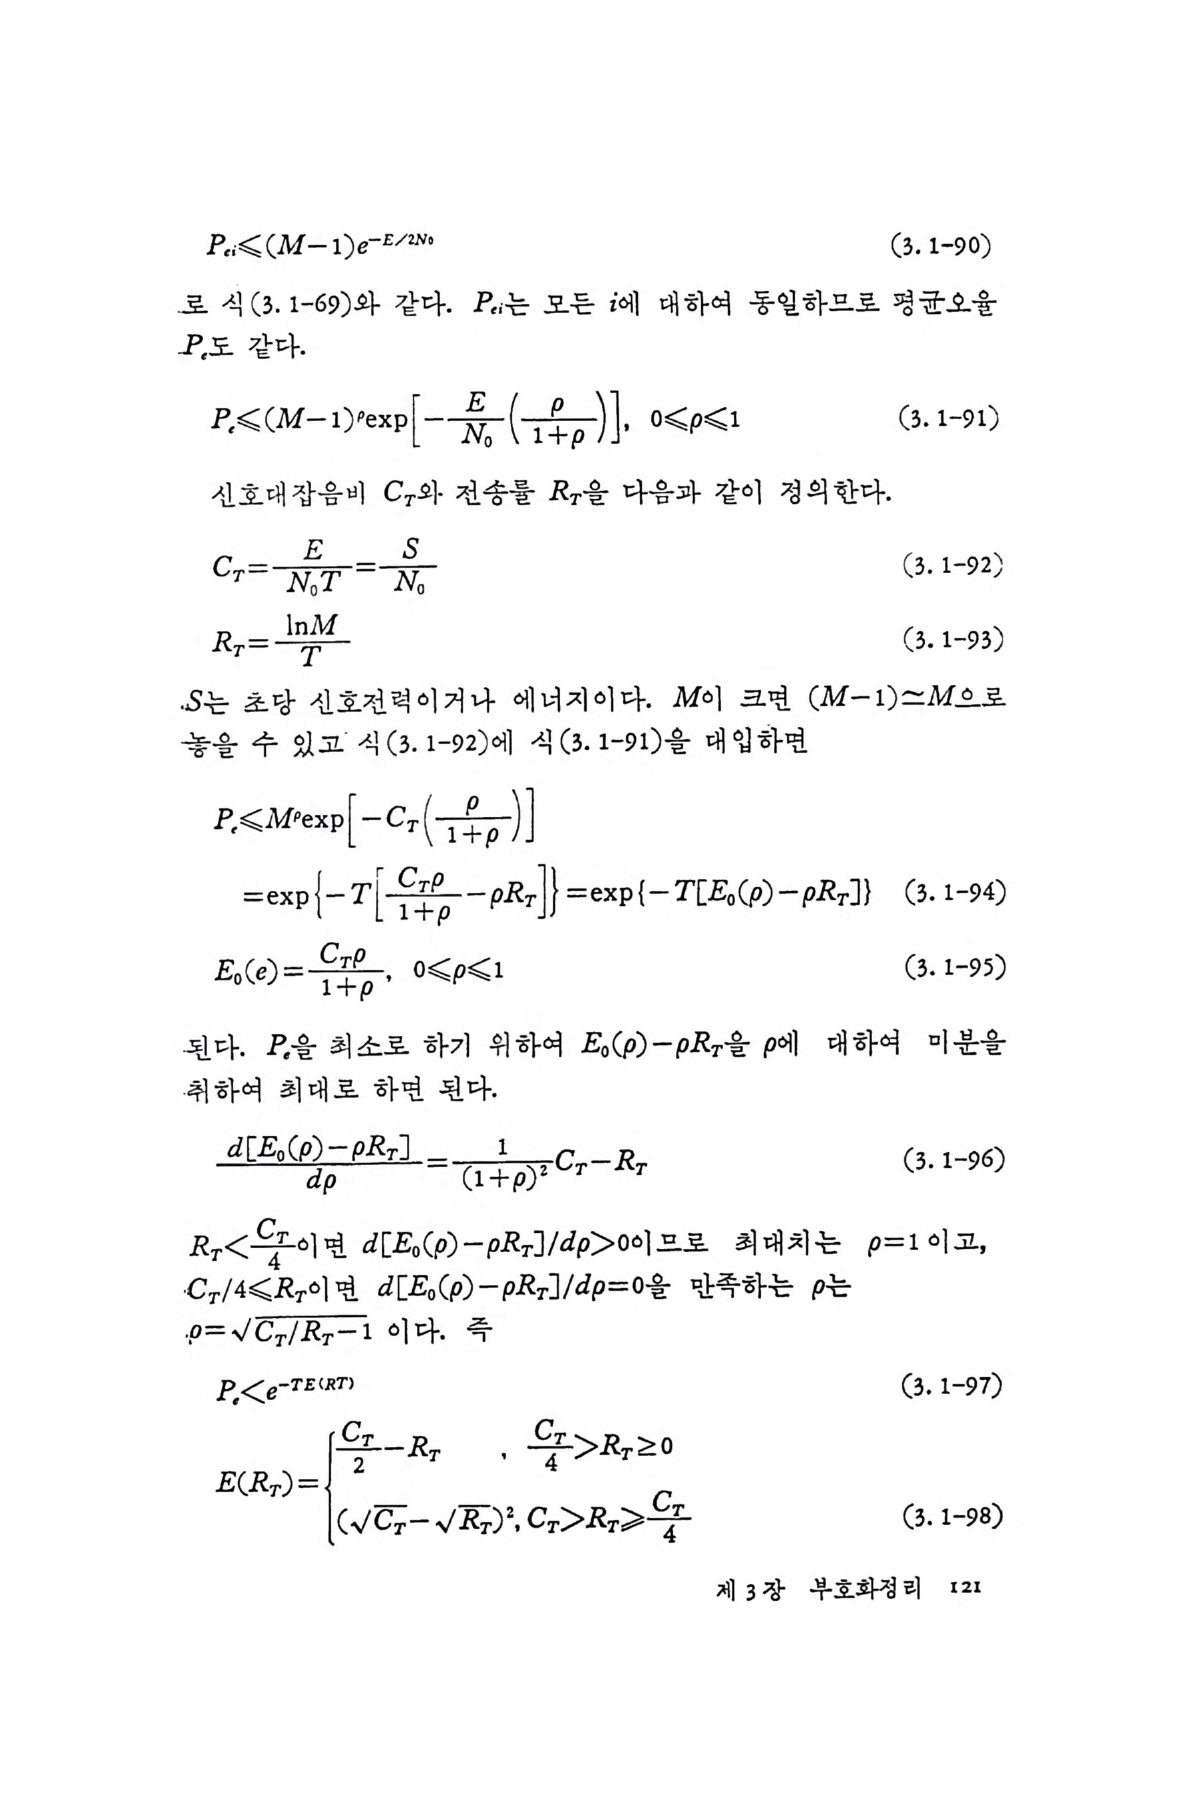 P_{ei}≤(M−1)e^{−E/2N₀} (3.1-90)
로 식(3.1-69)와 같다. P_{ei}는 모든 i에 대하여 동일하므로 평균오율
P_e도 같다.
P_e≤(M−1)^ρ exp[−\frac{E}{N₀}(\frac{ρ}{1+ρ})], 0≤ρ≤1 (3.1-91)
신호대잡음비 C_T와 전송률 R_T을 다음과 같이 정의한다.
C_T=\frac{E}{N₀T}=\frac{S}{N₀} (3.1-92)
R_T=\frac{lnM}{T} (3.1-93)
S는 초당 신호전력이거나 에너지이다. M이 크면 (M−1)≃M으로
놓을 수 있고 식(3.1-92)에 식(3.1-91)을 대입하면
P_e≤M^ρ exp[−C_T(\frac{ρ}{1+ρ})]
=exp{−T[\frac{C_Tρ}{1+ρ}−ρR_T]}=exp{−T[E₀(ρ)−ρR_T]} (3.1-94)
E₀(e)=\frac{C_Tρ}{1+ρ}, 0≤ρ≤1 (3.1-95)
된다. P_e을 최소로 하기 위하여 E₀(ρ)−ρR_T을 ρ에 대하여 미분을
취하여 최대로 하면 된다.
\frac{d[E₀(ρ)−ρR_T]}{dρ}=\frac{1}{(1+ρ)²}C_T−R_T (3.1-96)
R_T<\frac{C_T}{4}이면 d[E₀(ρ)−ρR_T]/dρ>0이므로 최대치는 ρ=1이고,
C_T/4≤R_T이면 d[E₀(ρ)−ρR_T]/dρ=0을 만족하는 ρ는
ρ=√{C_T/R_T−1} 이다. 즉
P_e<e^{−TE(RT)} (3.1-97)
\frac{C_T}{2}−R_T , \frac{C_T}{4}>R_T≥0
E(R_T)={
(√C_T−√R_T)², C_T>R_T≥\frac{C_T}{4} (3.1-98)
제 3 장 부호화정리 121